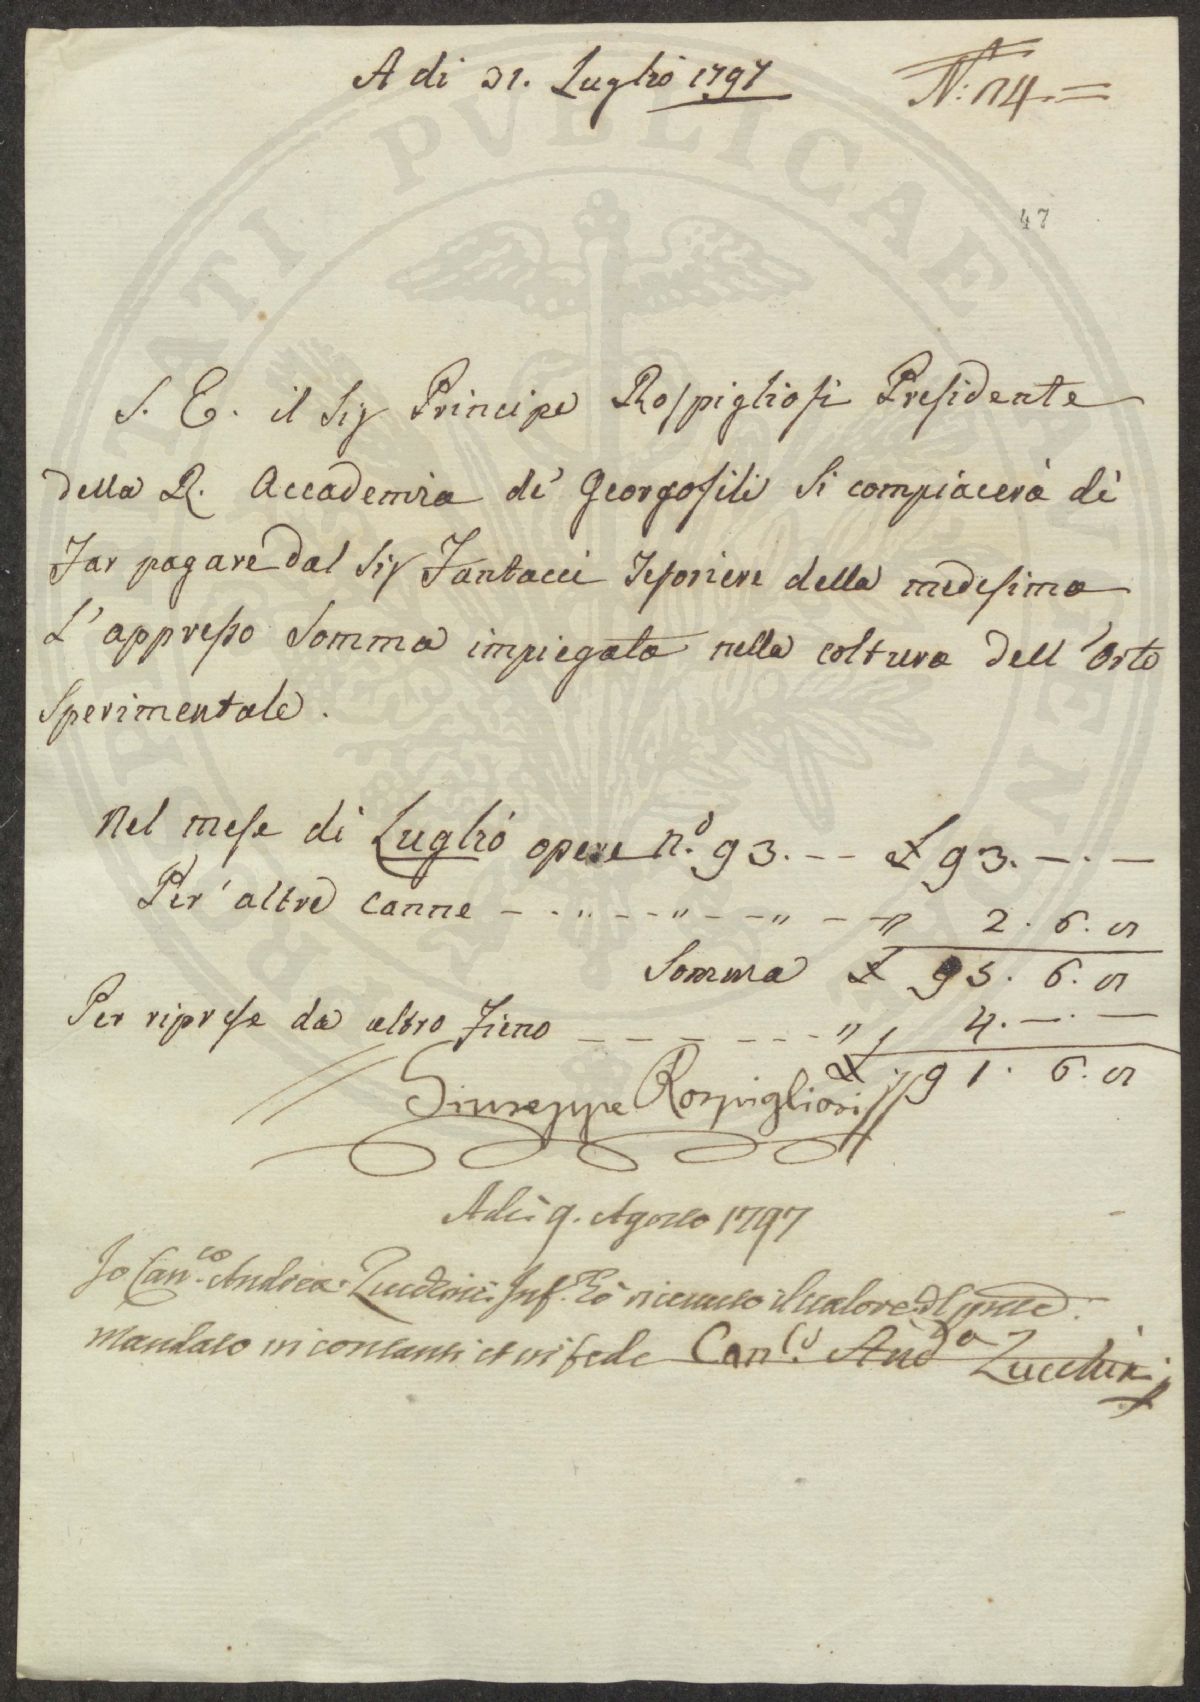 A di 31. Luglio 1797
N: 14.=
47
S. E. il Sig Principe Rospigliosi Presidente
della R. Accademia de' Georgofili si compiacerà di
far pagare dal Sig Fantacci Tesoriere della medesima
L'appresso Somma impiegata nella coltura dell'Orto
Sperimentale.
Nel mese di Luglio opere n.o 93. -- £ 93. -. -
Per altre canne - - " - - " - - " - - " 2. 6. 8
Somma £ 95. 6. 8
Per riprese da altro Fieno - - - - - - - " 4. -. -
£ 91. 6. 8
Giuseppe Rospigliosi
Adi 9. Agosto 1797
Io Can.co Andrea Zucchini Inf.to ò ricevuto il valore del pnte
Mandato in contanti et in fede Can.co And.a Zucchini
PVBLICAE